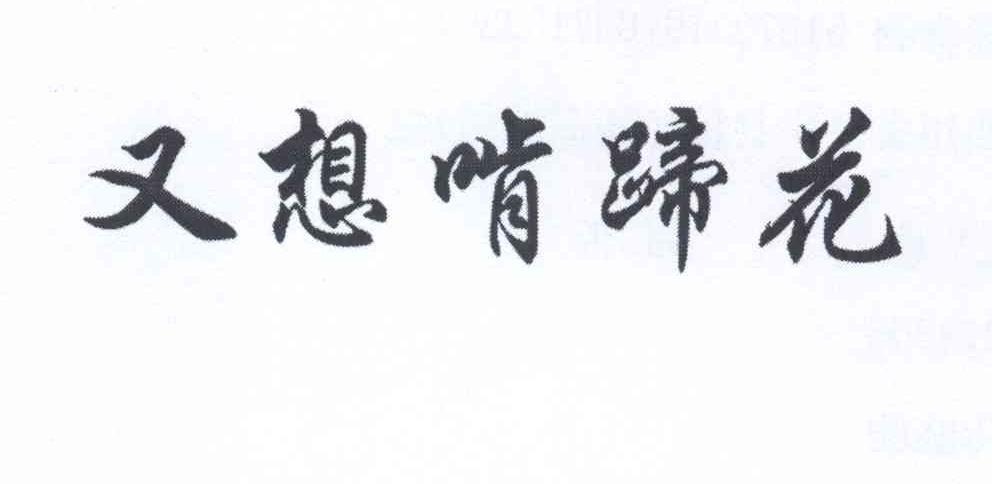 又想啃蹄花